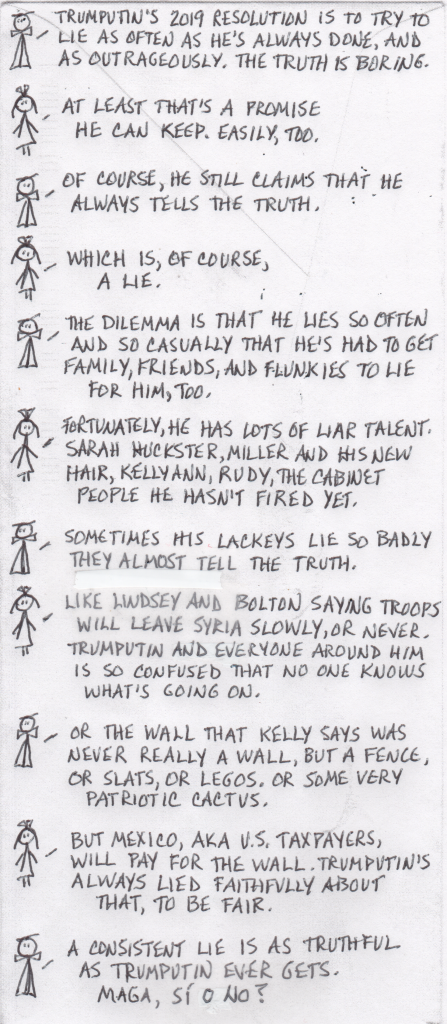 TRUMPUTIN'S 2019 RESOLUTION IS TO TRY TO
LIE AS OFTEN AS HE'S ALWAYS DONE, AND
AS OUTRAGEOUSLY. THE TRUTH IS BORING.
AT LEAST THAT'S A PROMISE
HE CAN KEEP. EASILY, TOO.
OF COURSE, HE STILL CLAIMS THAT HE
ALWAYS TELLS THE TRUTH.
WHICH IS, OF COURSE,
A LIE.
THE DILEMMA IS THAT HE LIES SO OFTEN
AND SO CASUALLY THAT HE'S HAD TO GET
FAMILY, FRIENDS, AND FLUNKIES TO LIE
FOR HIM, TOO.
FORTUNATELY, HE HAS LOTS OF LIAR TALENT.
SARAH HUCKSTER, MILLER AND HIS NEW
HAIR, KELLYANN, RUDY, THE CABINET
PEOPLE HE HASN'T FIRED YET.
SOMETIMES HIS LACKEYS LIE SO BADLY
THEY ALMOST TELL THE TRUTH.
LIKE LINDSEY AND BOLTON SAYING TROOPS
WILL LEAVE SYRIA SLOWLY, OR NEVER.
TRUMPUTIN AND EVERYONE AROUND HIM
IS SO CONFUSED THAT NO ONE KNOWS
WHAT'S GOING ON.
OR THE WALL THAT KELLY SAYS WAS
NEVER REALLY A WALL, BUT A FENCE,
OR SLATS, OR LEGOS. OR SOME VERY
PATRIOTIC CACTUS.
BUT MEXICO, AKA U.S. TAXPAYERS,
WILL PAY FOR THE WALL. TRUMPUTIN'S
ALWAYS LIED FAITHFULLY ABOUT
THAT, TO BE FAIR.
A CONSISTENT LIE IS AS TRUTHFUL
AS TRUMPUTIN EVER GETS.
MAGA, SÍ O NO?